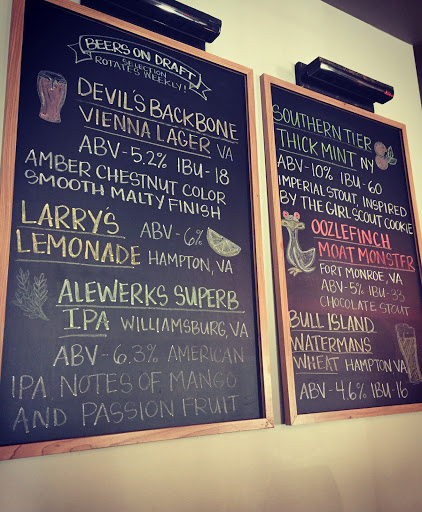 BEERS ON DRAFT
SELECTION
ROTATES WEEKLY!
DEVIL'S BACKBONE
VIENNA LAGER VA
ABV-5.2% IBU-18
AMBER CHESTNUT COLOR
SMOOTH MALTY FINISH
LARRY'S
LEMONADE
ABV-6%
HAMPTON, VA
ALEWERKS SUPERB
IPA WILLIAMSBURG, VA
ABV-6.3% AMERICAN
IPA NOTES OF MANGO
AND PASSION FRUIT
SOUTHERN TIER
THICK MINT NY
ABV-10% IBU-60
IMPERIAL STOUT, INSPIRED
BY THE GIRL SCOUT COOKIE
OOZLEFINCH
MOAT MONSTER
FORT MONROE, VA
ABV-5% IBU-33
CHOCOLATE STOUT
BULL ISLAND
WATERMANS
WHEAT HAMPTON VA
ABV-4.6% IBU-16